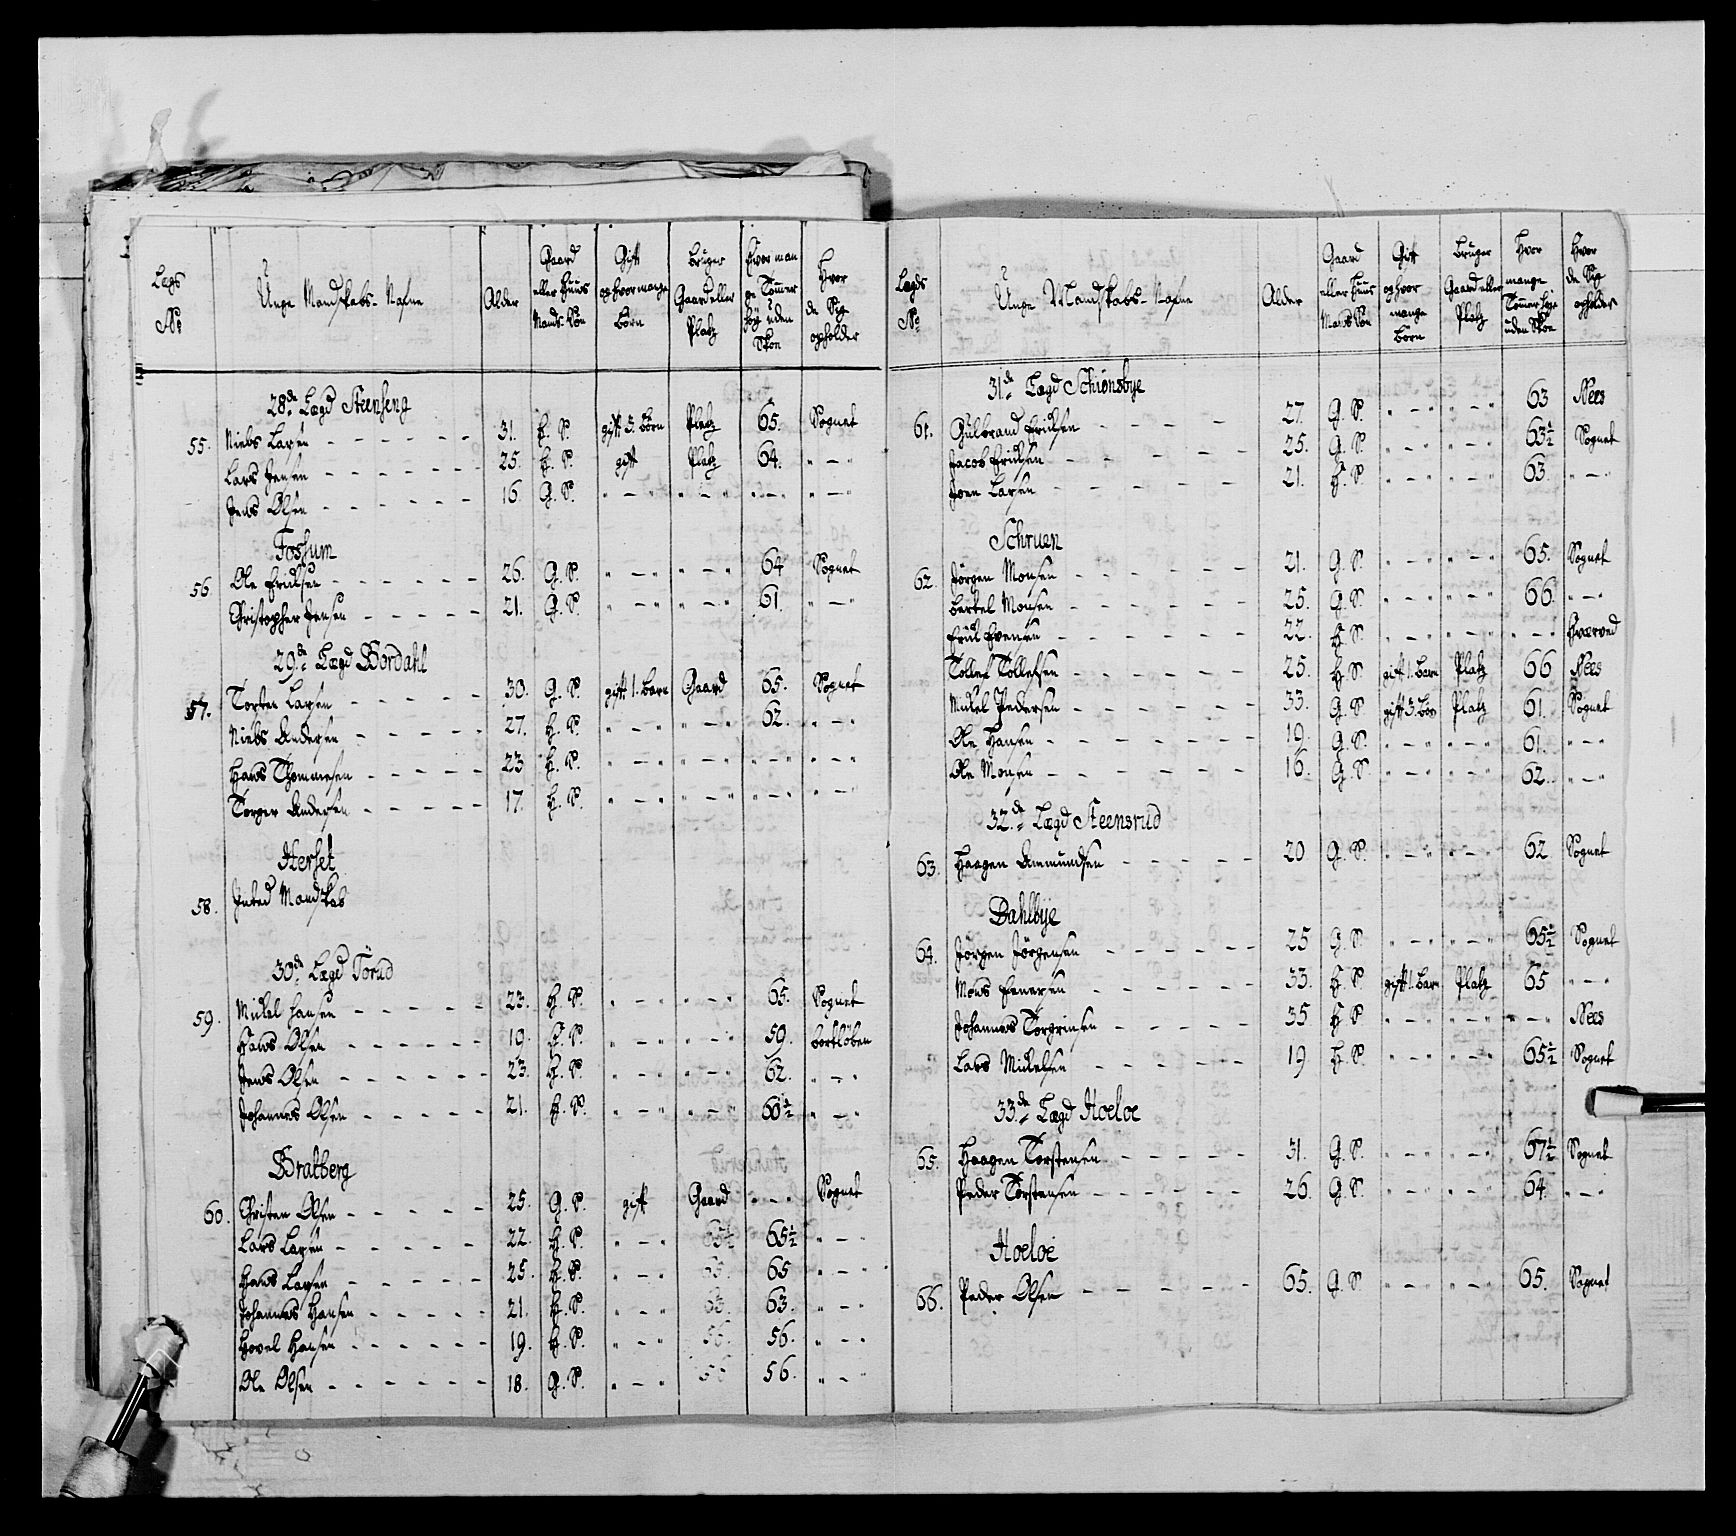 Lægs No | Unge Mandskabs-Nafne | Alder | Gaard eller Huus Mands Søn | Gift og hvor mange Börn | Bruger Gaard eller Platz | Hvor mange Tommer høy uden Skoe | Hvor de Sig opholder
28de Lægd Steenseng
55. Niels Larsen - - - 31. H. S. gift 3. Börn Platz 65. Sognet
Lars Jensen - - - 25. H. S. gift Platz 64. " - "
Jens Olsen - - - 16. G. S. " - " " - " " - " " - "
Foshum
56. Ole Erichsen - - - 26. G. S. " - " " - " 64 Sognet
Christopher Jensen - - - 21. G. S. " - " " - " 61. " - "
29de Lægd Bordahl
57. Torsten Larsen - - - 30. G. S. gift 1. Barn Gaard 65. Sognet
Niels Andersen - - - 27. H. S. " - " " - " 62. " - "
Hans Thommesen - - - 23 H. S. " - " " - " " - " " - "
Torger Andersen - - - 17. H. S. " - " " - " " - " " - "
Herset
58. Inted Mandskab
30de Lægd Törud
59. Mickel Hansen - - - 23. H. S. " - " " - " 65. Sognet
Hans Olsen - - - 19. H. S. " - " " - " 59. bortlöben
Jens Olsen - - - 23. H. S. " - " " - " 62. " - "
Johannes Olsen - - - 21. H. S. " - " " - " 60½ " - "
Bratberg
60. Christen Olsen - - - 25. G. S. gift Gaard " - " Sognet
Lars Larsen - - - 22. H. S. " - " 65½ 65½ " - "
Hans Larsen - - - 25. H. S. " - " 65. 65 " - "
Johannes Hansen - - - 21. H. S. " - " 63. 63. " - "
Hovel Hansen - - - 19. H. S. " - " 56. 56. " - "
Ole Olsen - - - 18. G. S. " - " 56 56. " - "
Lægds No | Unge Mandskabs-Nafne | Alder | Gaard eller Huus Mands Søn | Gift og hvor mange Börn | Bruger Gaard eller Platz | Hvor mange Tommer høye uden Skoe | Hvor de Sig opholder
31de Lægd Schiönsbye
61. Gulbrand Erichsen - - - 27. G. S. " - " " - " 63 Nees
Jacob Erichsen - - - 25. G. S. " - " " - " 63½ Sognet
Joen Larsen - - - 21. H. S. " - " " - " 63 " - "
Schruen
62. Jörgen Monsen - - - 21. G. S. " - " " - " 65. Sognet
Bertel Monsen - - - 25. G. S. " - " " - " 66. " - "
Erich Evensen - - - 22. H. S. " - " " - " " - "
Tollef Tollefsen - - - 25. H. S gift 1. Barn Platz 66 Nees
Mickel Pedersen - - - 33. G. S gift 3. Bör Platz 61. Sognet
Ole Hansen - - - 19. G. S. " - " " - " 61. " - "
Ole Monsen - - - 16. G. S " - " " - " 62. " - "
32de Lægd Steensrud
63. Haagen Ammundsen - - - 20 G. S. " - " " - " 62 Sognet
Dahlbye
64. Jörgen Jörgensen - - - 25 G. S. " - " " - " 65½ Sognet
Mons Einersen - - - 33. H. S gift 1. Barn Platz 65 " - "
Johannes Torgrinsen - - - 35 H S " - " " - " " - " Nees
Lars Mickelsen - - - 19 H. S. " - " " - " 65½ Sognet
33de Lægd Hoeloe
65. Haagen Torstensen - - - 31. G. S. " - " " - " 67½ Sognet
Peder Torstensen - - - 26. G. S. " - " " - " 64. " - "
Hoeloe
66. Peder Olsen - - - 65. G. S " - " " - " 65. Sognet